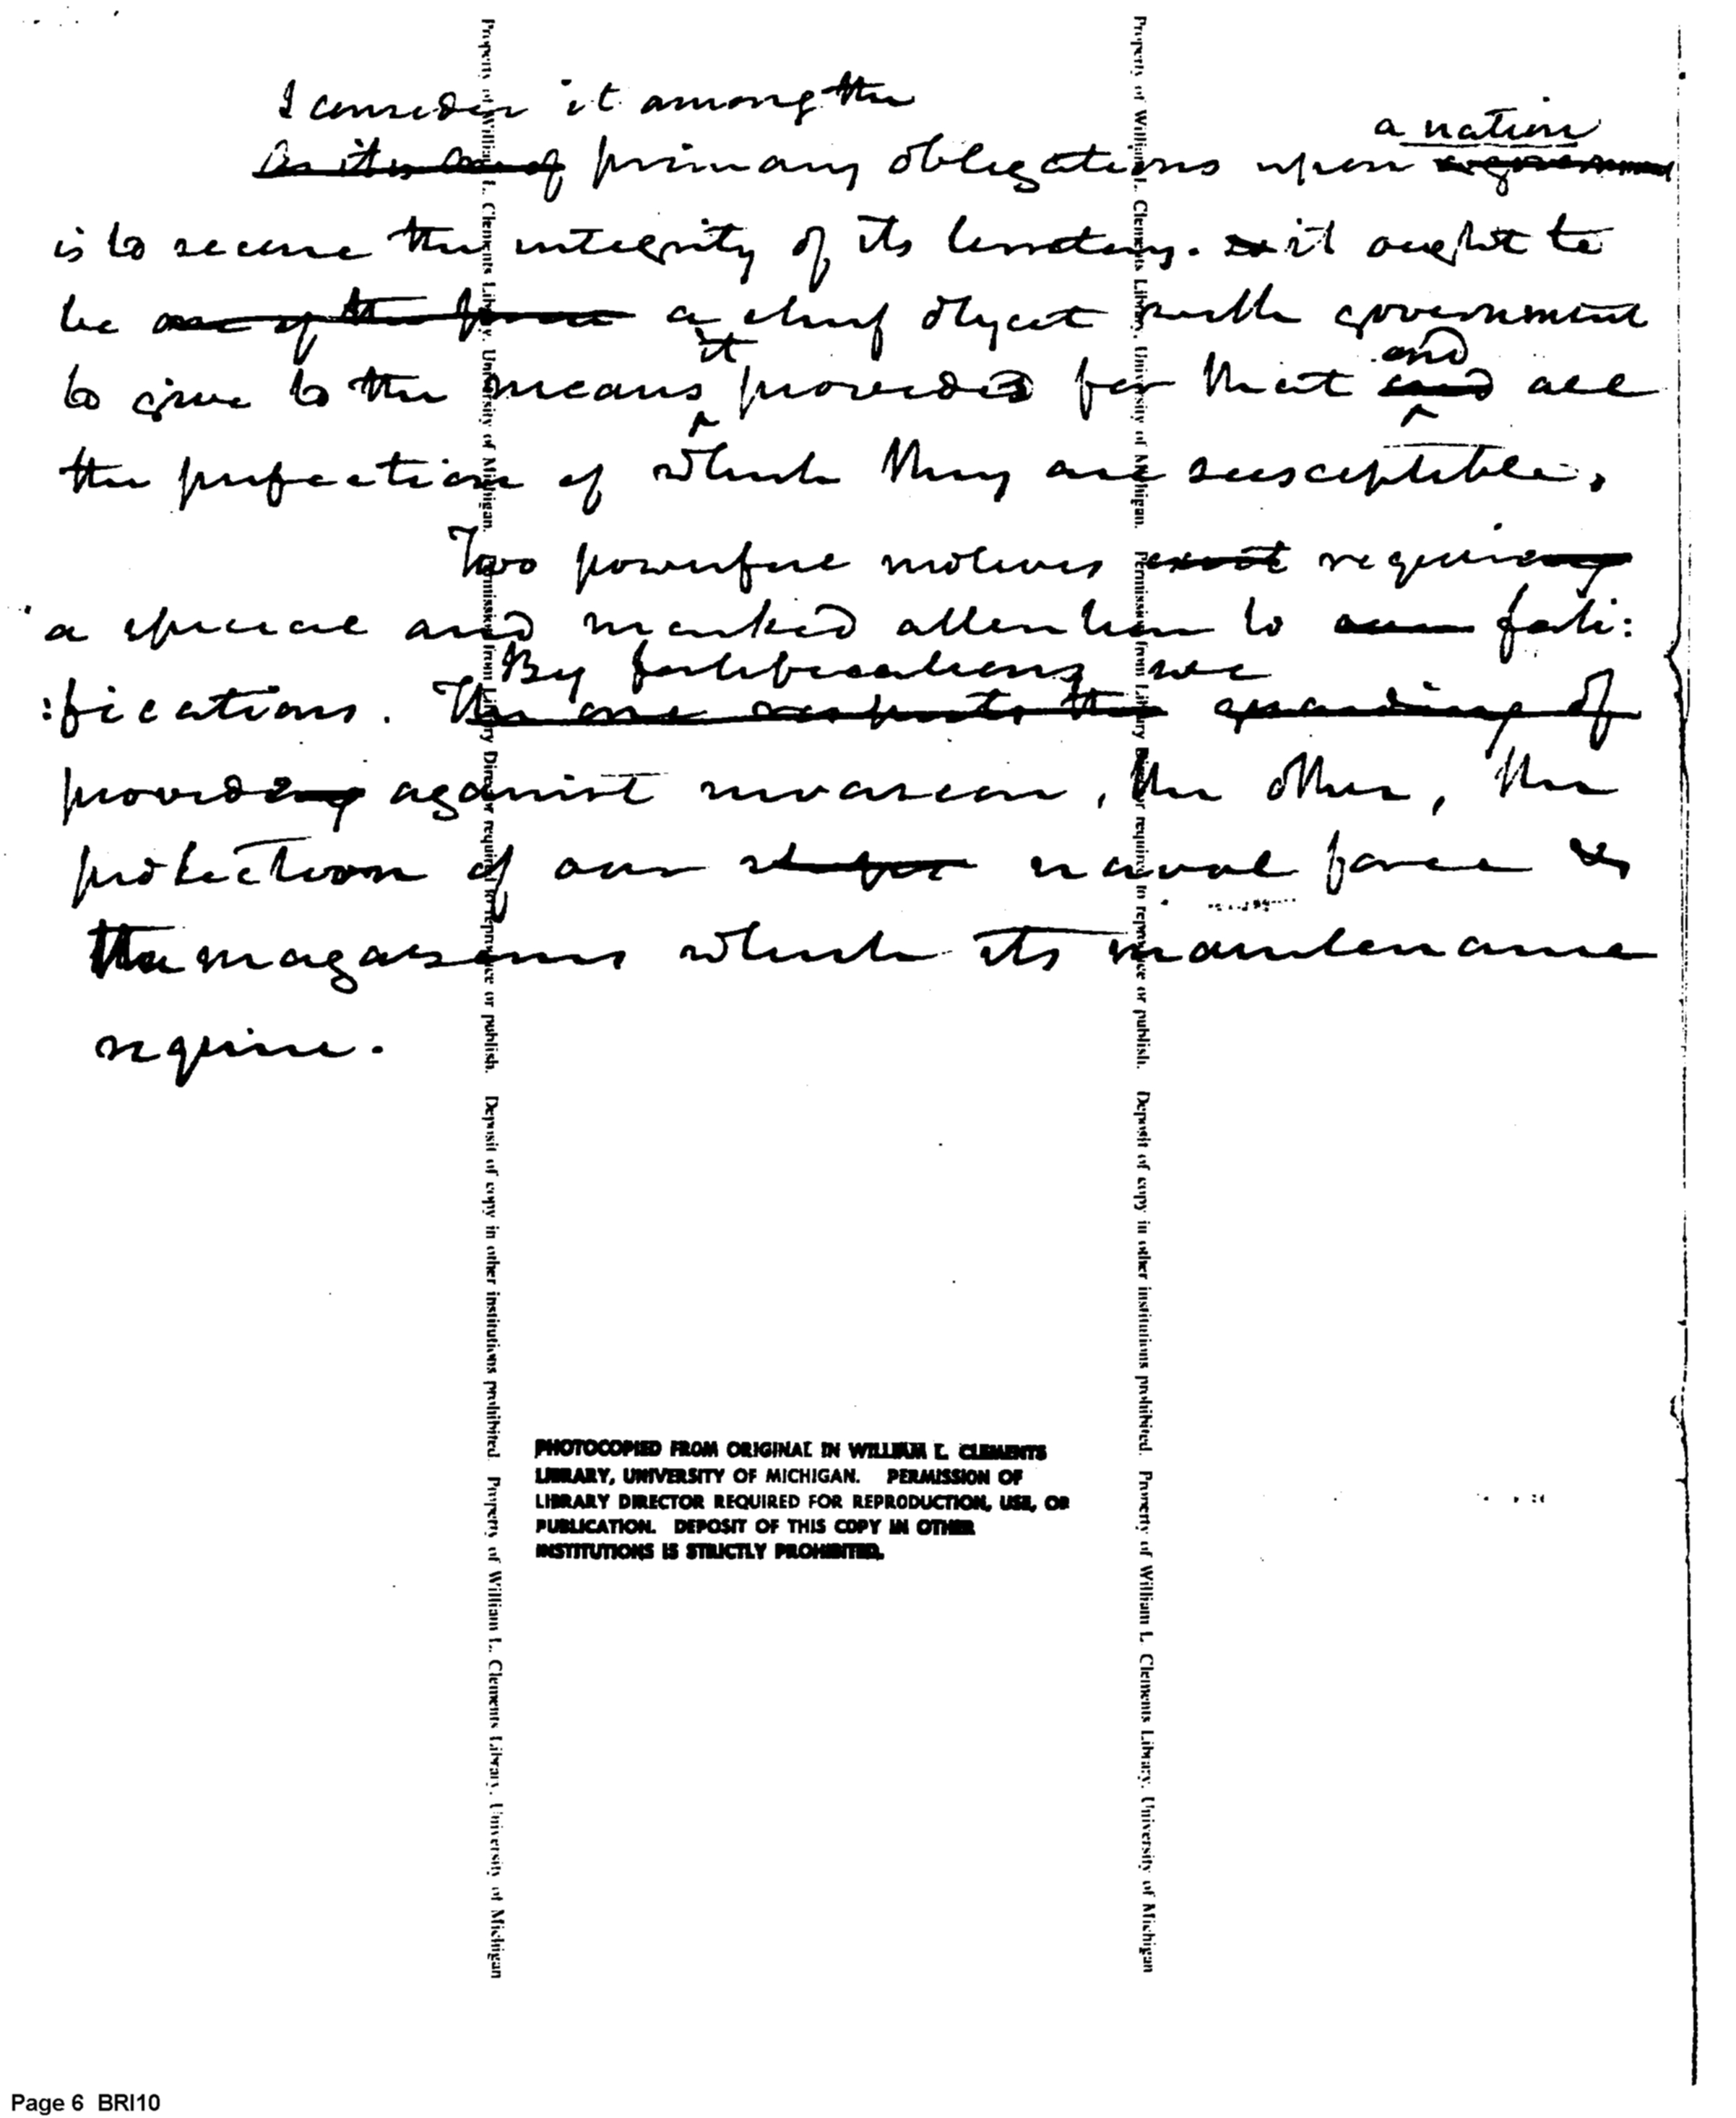 I consider it among the
As it is one of primary obligations upon a nation
is to secure the integrity of its territory. it ought to
be one of the a chief object with government
to give to the means it provides for that and all
the perfection of which they are susceptible.
Two powerful motives exist requiring
a special and marked attention to our forti:
:fications. By fortifications we
The one respects the guarding of
providing against invasion, the other, the
protection of our naval force &
the magazines which its maintenance
require.
PHOTOCOPIED FROM ORIGINAL IN WILLIAM L. CLEMENTS
LIBRARY, UNIVERSITY OF MICHIGAN. PERMISSION OF
LIBRARY DIRECTOR REQUIRED FOR REPRODUCTION, USE, OR
PUBLICATION. DEPOSIT OF THIS COPY IN OTHER
INSTITUTIONS IS STRICTLY PROHIBITED.
Property of William L. Clements Library, University of Michigan. Permission from Library Director required to reproduce or publish. Deposit of copy in other institutions prohibited. Property of William L. Clements Library, University of Michigan
Property of William L. Clements Library, University of Michigan. Permission from Library Director required to reproduce or publish. Deposit of copy in other institutions prohibited. Property of William L. Clements Library, University of Michigan
Page 6 BRI10